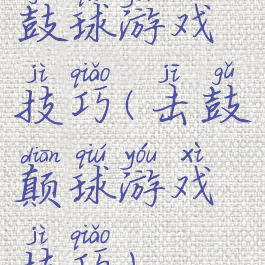 鼓球游戏
jì qiǎo jī gǔ
技巧(击鼓
diān qiú yóu xì
颠球游戏
jì qiǎo
技巧)